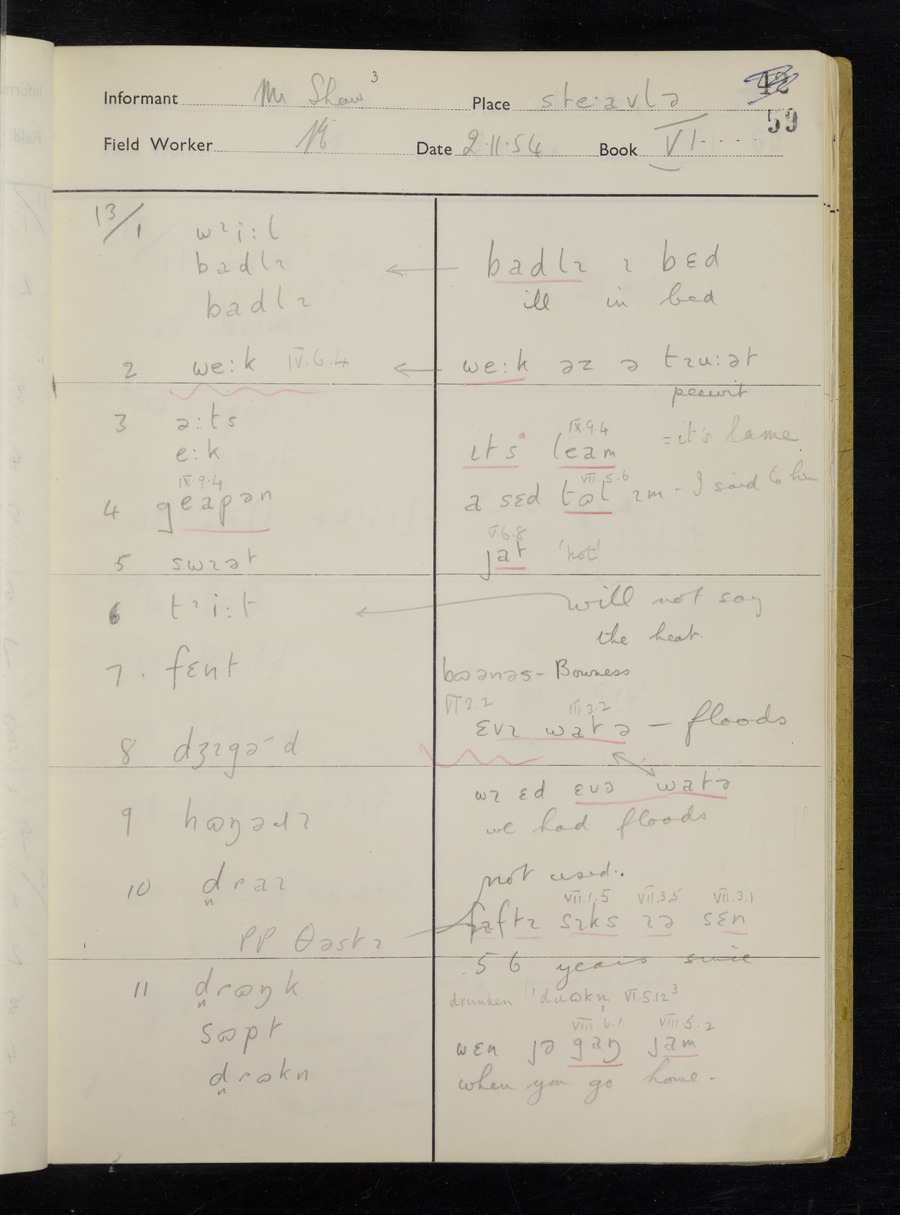 Informant Mr Shaw 3 Place ste·avlə 42
59
Field Worker Date 2·11·54 Book VI
13/1 wɪi:l
badlɪ ← badlɪ ɪ bɛd
badlɪ ill in bed
2 we:k IV.6.4 ← we:k əz ə tɪu:ət
pewit
3 ə:ts
e:k ɪts leam IX 9.4 = it's lame
IX 9.4
4 geapən a sɛd tɷl VII.5.6 ɪm - I said to him
V.6.8
5 swɪət jat 'hot'
6 tɪi:t ← will not say
the heat.
7. fɛnt bɷənəs - Bowness
VI 2.2 III 3.2
ɛvɪ watə — floods
8 dʒɪgə d
wɪ ɛd ɛvə watə
9 hɷŋəɹɪ we had floods
10 draɪ not used.
VII.1.5 VII.3.5 VII.3.1
PP θəstɪ fɪftɪ sɪks ɪə sɛn
56 years since
11 drɷŋk drunken 'dɹɷkn̩ VI.5.12 3
sɷpt VIII.6.1 VIII 5.2
wɛn jə gaŋ jam
drɷkn when you go home.